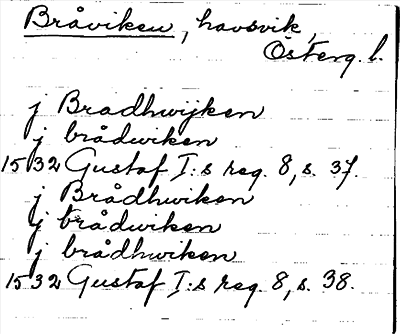 Bråviken, havsvik,
Österg. l.
j Bradhwijken
j brådwiken
1532 Gustaf I:s reg. 8, s. 37.
j Brådhwiken
j brådwiken
j brådhwiken
1532 Gustaf I:s reg. 8, s. 38.